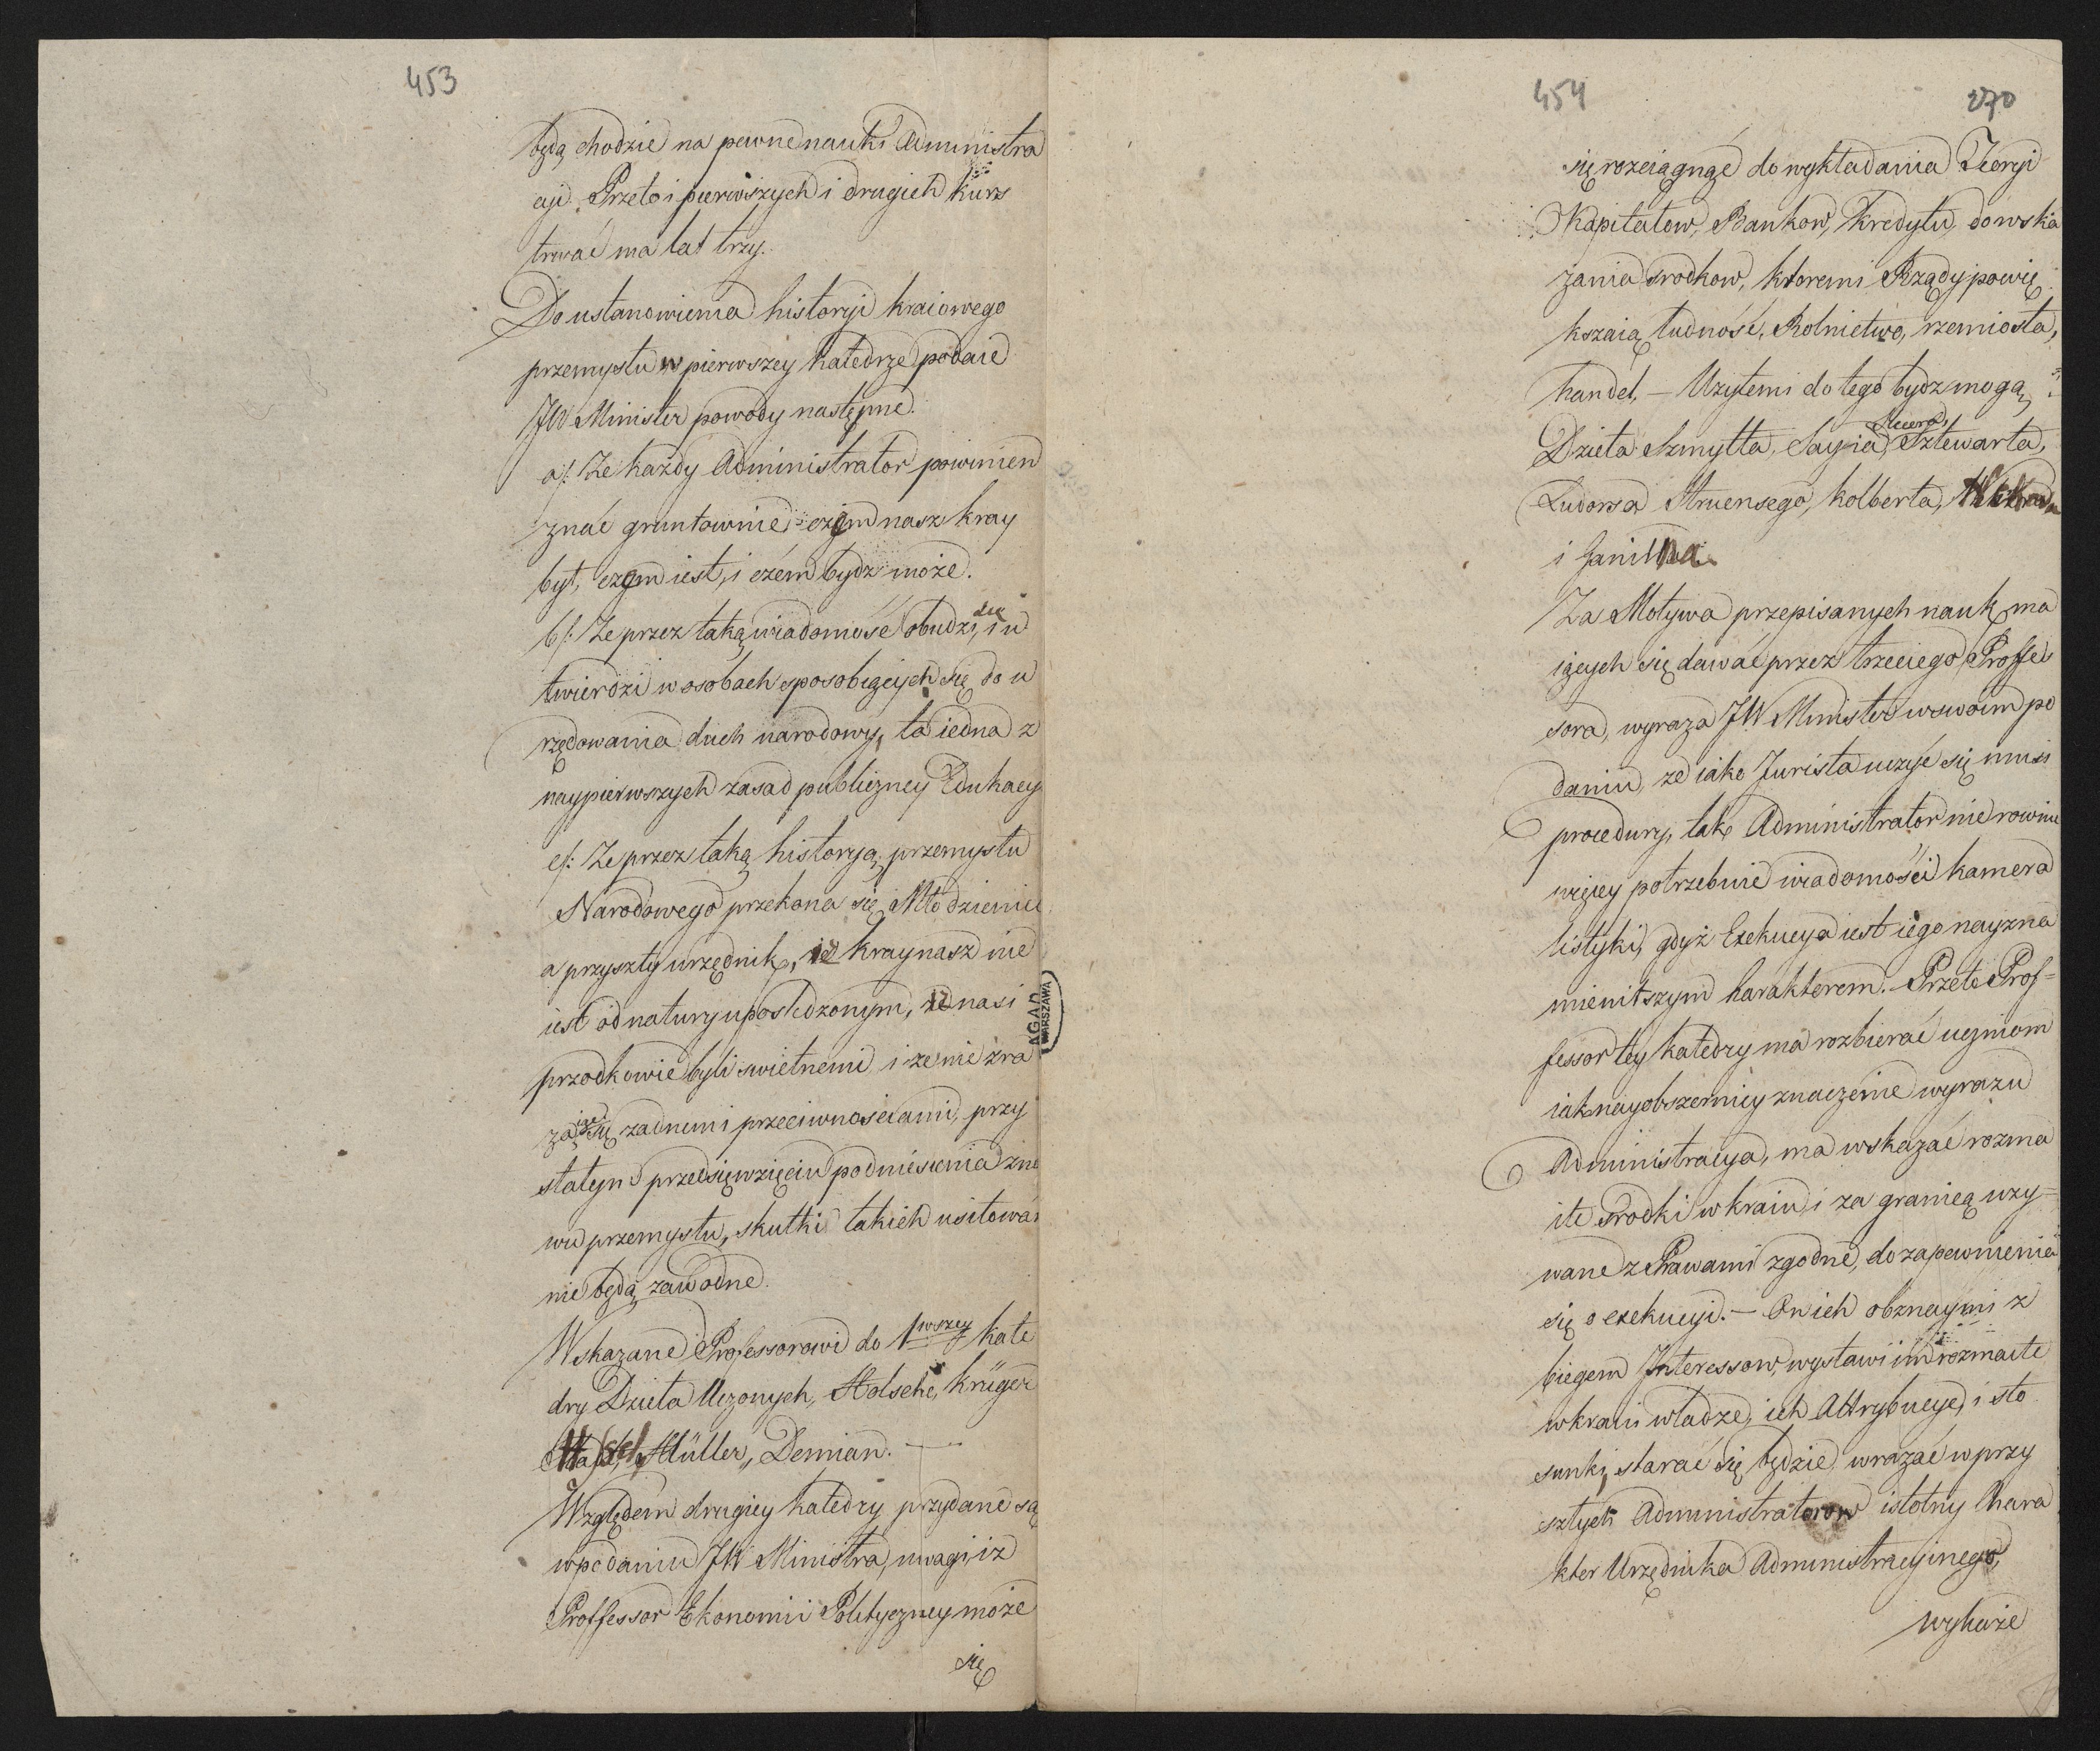 453
będą chodzić na pewne nauki Administra
cyi. Przeto i pierwszych i drugich kurs
trwać ma lat trzy.
Do ustanowienia historyi kraiowego
przemysłu w pierwszey katedrze podaie
JW Minister powody następne.
a/: Ze każdy Administrator powinien
znać gruntownie czem nasz kray
był, czem iest, i czém bydz może.
b/: Ze przez taką wiadomość obudzi się, i u
twierdzi w osobach sposobiących się do u
rzędowania duch narodowy, ta iedna z
naypierwszych zasad publiczney Edukacyi
c/: Ze przez taką historyą przemysłu
Narodowego przekona się Młodzieniec
a przyszły urzędnik, że kray nasz nie
iest od natury upośledzonym, że nasi
przodkowie byli swietnemi i że nie zra
zaiąc się zadnemi przeciwnościami, przy
stałym przedsięwzięciu podniesienia zno
wu przemysłu, skutki takich usiłowań
nie będą zawodne.
Wskazane Professorowi do 1wszey kate
dry Dzieła Uczonych, Holsche, Krüger
Hassel, Müller, Demian. —
Względem drugiey katedry przydane są
w podaniu JW Ministra, uwagi, iz
Proffessor Ekonomii Polityczney może
się
AGAD
WARSZAWA
454
270
się rozciągnąć do wykładania Teoryi
Kapitałow, Bankow, Kredytu, do wska
zania srodkow, ktoremi Rządy powię
kszaią ludność, Rolnictwo, rzemiosła,
handel, — Uzytemi do tego bydz mogą
Dzieła Szmytta, Sayia, Sztewarta,
Ludorsa Struensego, Kolberta,
i Ganilha.
Za Motywa przepisanych nauk, ma
iących się dawać przez trzeciego Proffes
sora, wyraza JW Minister w swoim po
daniu, ze iako Jurista uczyć się musi
procedury, tak Administrator nierownie
więcey potrzebuie wiadomości kamera
listyki, gdyż Exekucya iest iego nayzna
mienitszym charakterem. Przeto Prof=
fessor tey katedry ma rozbierać uczniom
iak nayobszerniey znaczenie wyrazu
Administracya, ma wskazać rozma
ite srodki w kraiu i za granicą uzy=
wane z Prawami zgodne, do zapewnienia
się o exekucyi. — On ich obznaymi z
biegem Interessow, wystawi im rozmaite
w kraiu władze, ich Attrybucye, i sto
sunki, starać się będzie wrazać w przy
szłych Administratorow istotny Chara
kter Urzędnika Administracyinego,
wykaże